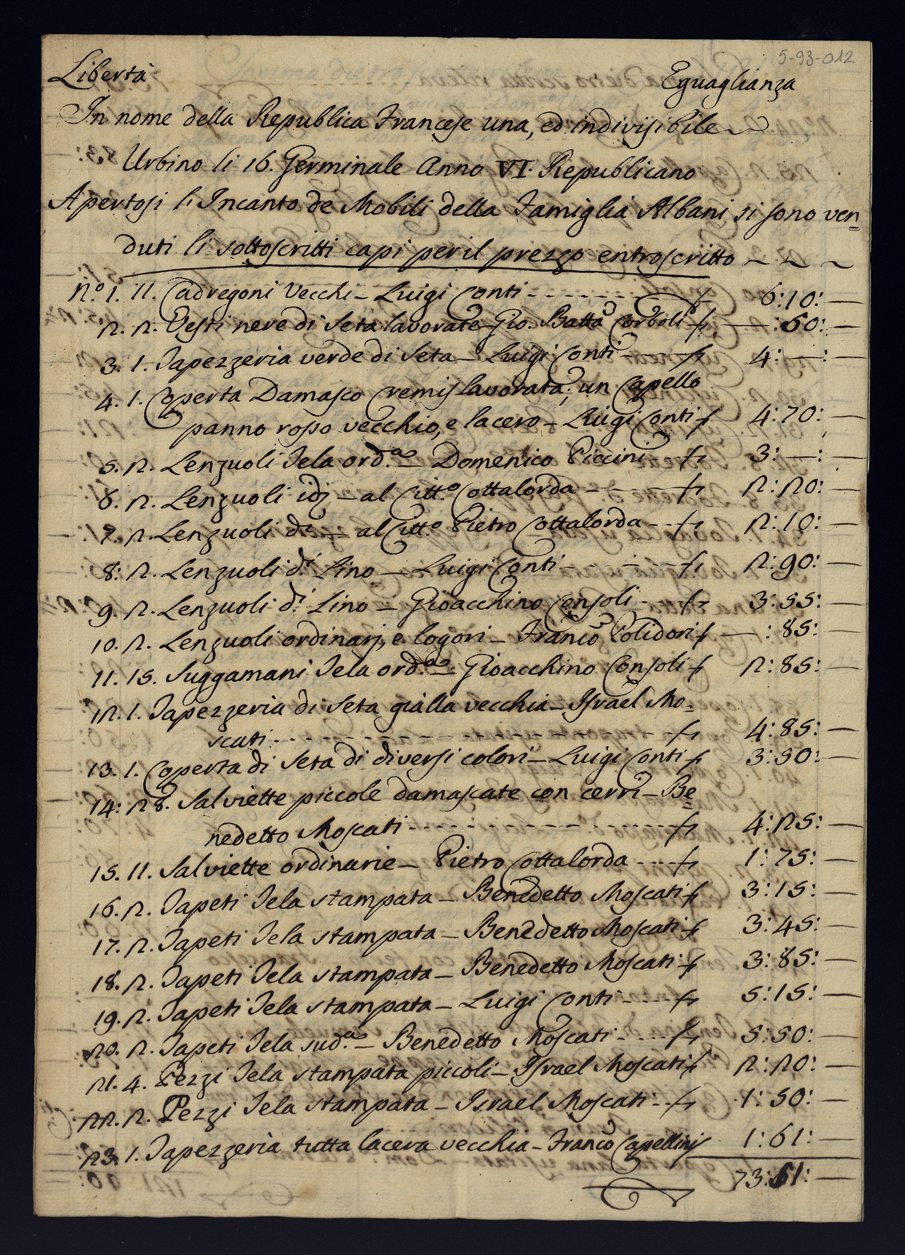 5-93-012
Libertà Eguaglianza
In nome della Republica Francese una, ed indivisibile
Urbino li 16. Germinale Anno VI. Republicano
Apertosi l'Incanto de Mobili della Famiglia Albani si sono ven=
duti li sottoscritti capi per il prezzo entroscritto
N.° 1. 11. Cadregoni Vecchi – Luigi Conti - - - 6:10: —
2. 2. Vesti nere di Seta lavorate – Gio. Batta Corboli — :60: —
3. 1. Tapezzeria verde di Seta – Luigi Conti - - 4: — : —
4. 1. Coperta Damasco Cremis lavorata, un Capello
panno rosso vecchio, e lacero – Luigi Conti 4:70: —
5. 2. Lenzuoli Tela ord.a – Domenico Piccini 3: — : —
6. 2. Lenzuoli id – al Citt.o Cottalorda - - - 2:20: —
7. 2. Lenzuoli di – al Citt.o Pietro Cottalorda - - 2:10: —
8. 2. Lenzuoli d.i Lino – Luigi Conti - - - 2:90: —
9. 2. Lenzuoli d.i Lino – Gioacchino Consoli - - 3:55: —
10. 2. Lenzuoli ordinarj, e logori – Franc.o Polidori — :85: —
11. 15. Suggamani Tela ord.a – Gioacchino Consoli 2:85: —
12. 1. Tapezzeria di Seta gialla vecchia – Israel Mo=
scati - - - 4:85: —
13. 1. Coperta di Seta di diversi colori – Luigi Conti 3:50: —
14: 28. Salviette piccole damascate con cerri – Be=
nedetto Moscati - - - 4:25: —
15. 11. Salviette ordinarie – Pietro Cottalorda - - - 1:75: —
16. 2. Tapeti Tela stampata – Benedetto Moscati 3:15: —
17. 2. Tapeti Tela stampata – Benedetto Moscati 3:45: —
18. 2. Tapeti Tela stampata – Benedetto Moscati 3:85: —
19. 2. Tapeti Tela stampata – Luigi Conti - - - 5:15: —
20. 2. Tapeti Tela sud.a – Benedetto Moscati - - - 5:50: —
21. 4. Pezzi Tela stampata piccoli – Israel Moscati 2:20: —
22. 2. Pezzi Tela stampata – Israel Moscati - - 1:50: —
23. 1. Tapezzeria tutta lacera vecchia – Franc.o Capellini 1:61: —
73:61: —